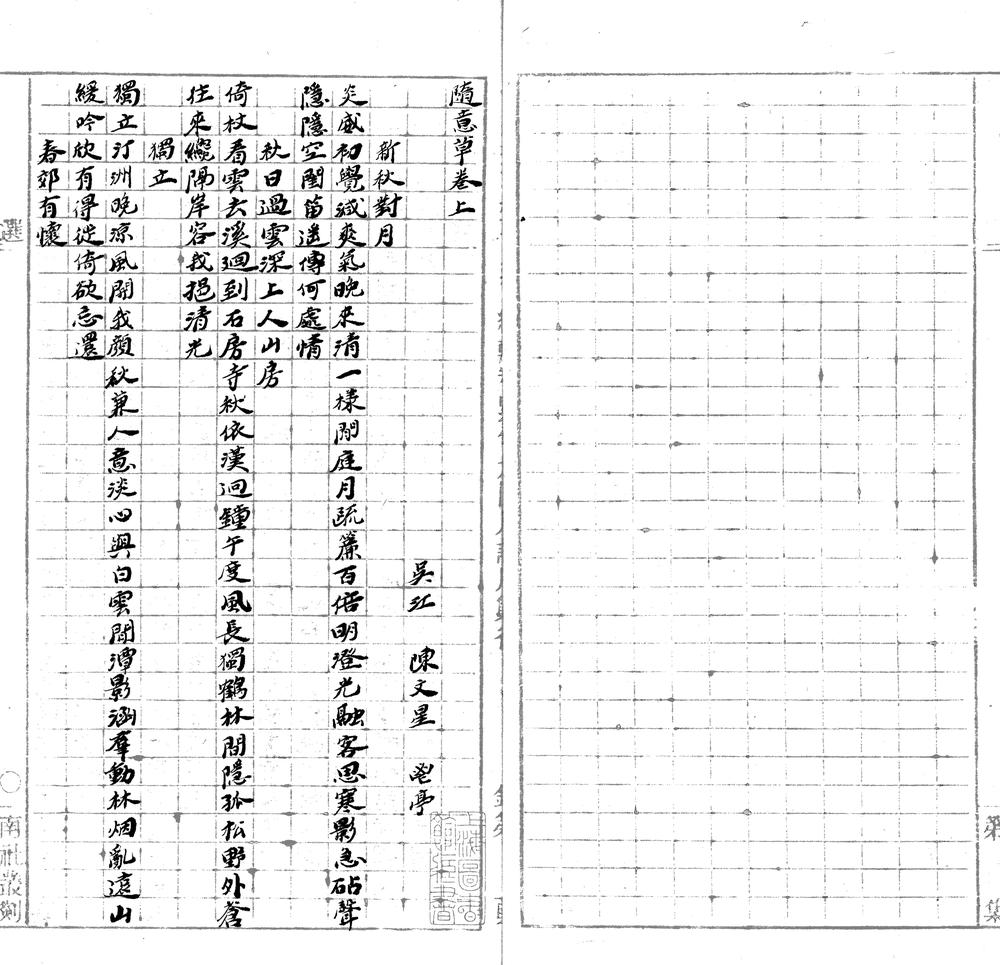 隨意草卷上
吳江 陳文星 鬯亭
新秋對月
炎威初覺減爽氣晚來清一樣閒庭月疏簾百倍明澄光融客思寒影急砧聲
隱隱空閨笛遙傳何處情
秋日過雲深上人山房
倚杖看雲去溪迴到石房寺秋依漢迥鐘午度風長獨鶴林間隱孤松野外蒼
往來纔隔岸容我挹清光
獨立
獨立汀洲晚涼風開我顏秋兼人意淡心與白雲間潭影涵羣動林烟亂遠山
緩吟欣有得徙倚欲忘還
春郊有懷
選
南社叢刻
二
第
集